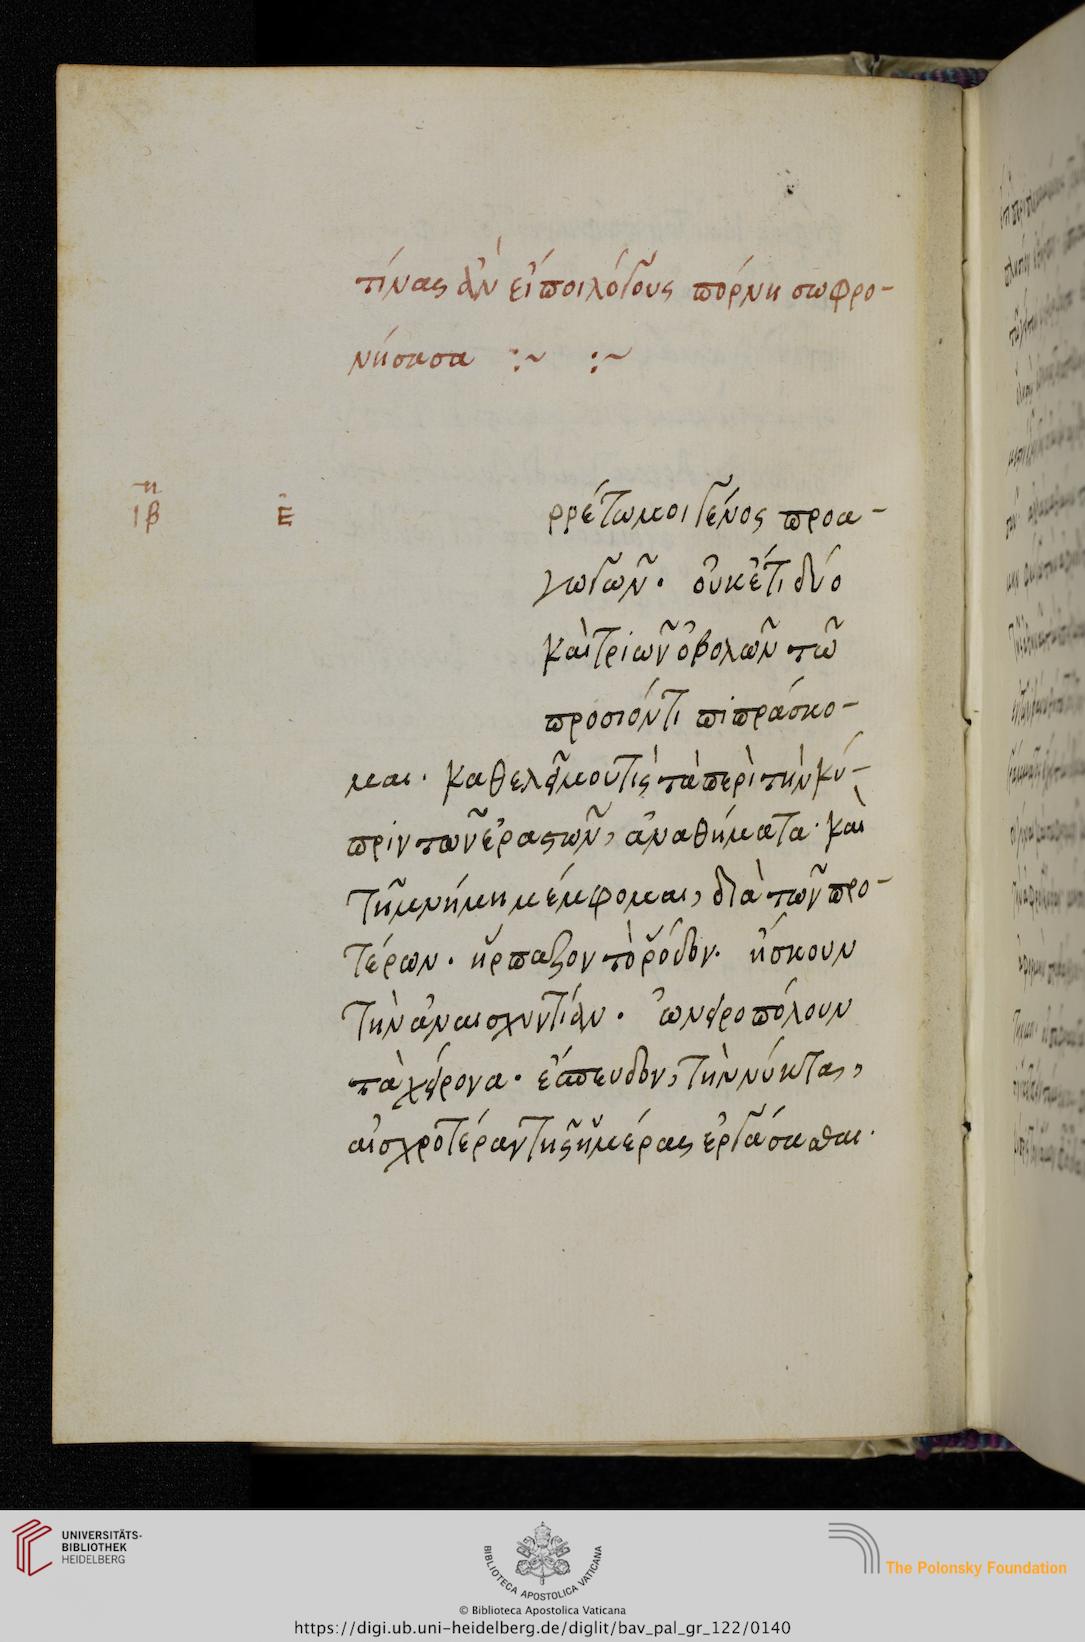 τίνας ἂν εἴποι λόγους πόρνη σωφρο-
νήσασα :~ :~
η
ιβ
Ε
ρρέτω μοι γένος προα-
γωγῶν· οὐκέτι δύο
καὶ τριῶν ὀβολῶν τῶ
προσιόντι πιπράσκο-
μαι· καθελεῖ μου τίς τὰ περὶ τὴν κύ-
πριν τῶν ἐραστῶν, ἀναθήματα· καὶ
τῆ μνήμη μέμφομαι, διὰ τῶν προ-
τέρων· ἥρπαζον τὸ ῥόδον· ἤσκουν
τὴν ἀναισχυντίαν· ὠνειροπόλουν
τὰ χείρονα· ἔσπευδον, τὴν νύκτα,
αἰσχροτέραν τῆς ἡμέρας ἐργάσασθαι·
UNIVERSITÄTS-
BIBLIOTHEK
HEIDELBERG
BIBLIOTECA APOSTOLICA VATICANA
© Biblioteca Apostolica Vaticana
The Polonsky Foundation
https://digi.ub.uni-heidelberg.de/diglit/bav_pal_gr_122/0140